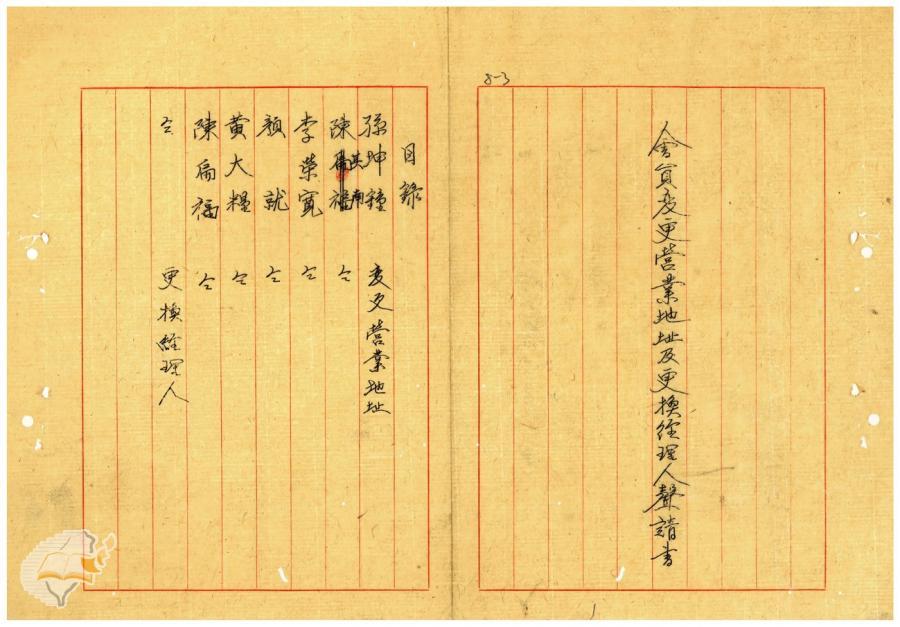 5-3
會員变更營業地址及更換經理人聲請書
1
目錄
孫坤鐘 变更营業地址
陳 福 仝
李荣寬 仝
顏就 仝
黄大糧 仝
陳扁福 仝
仝 更換經理人